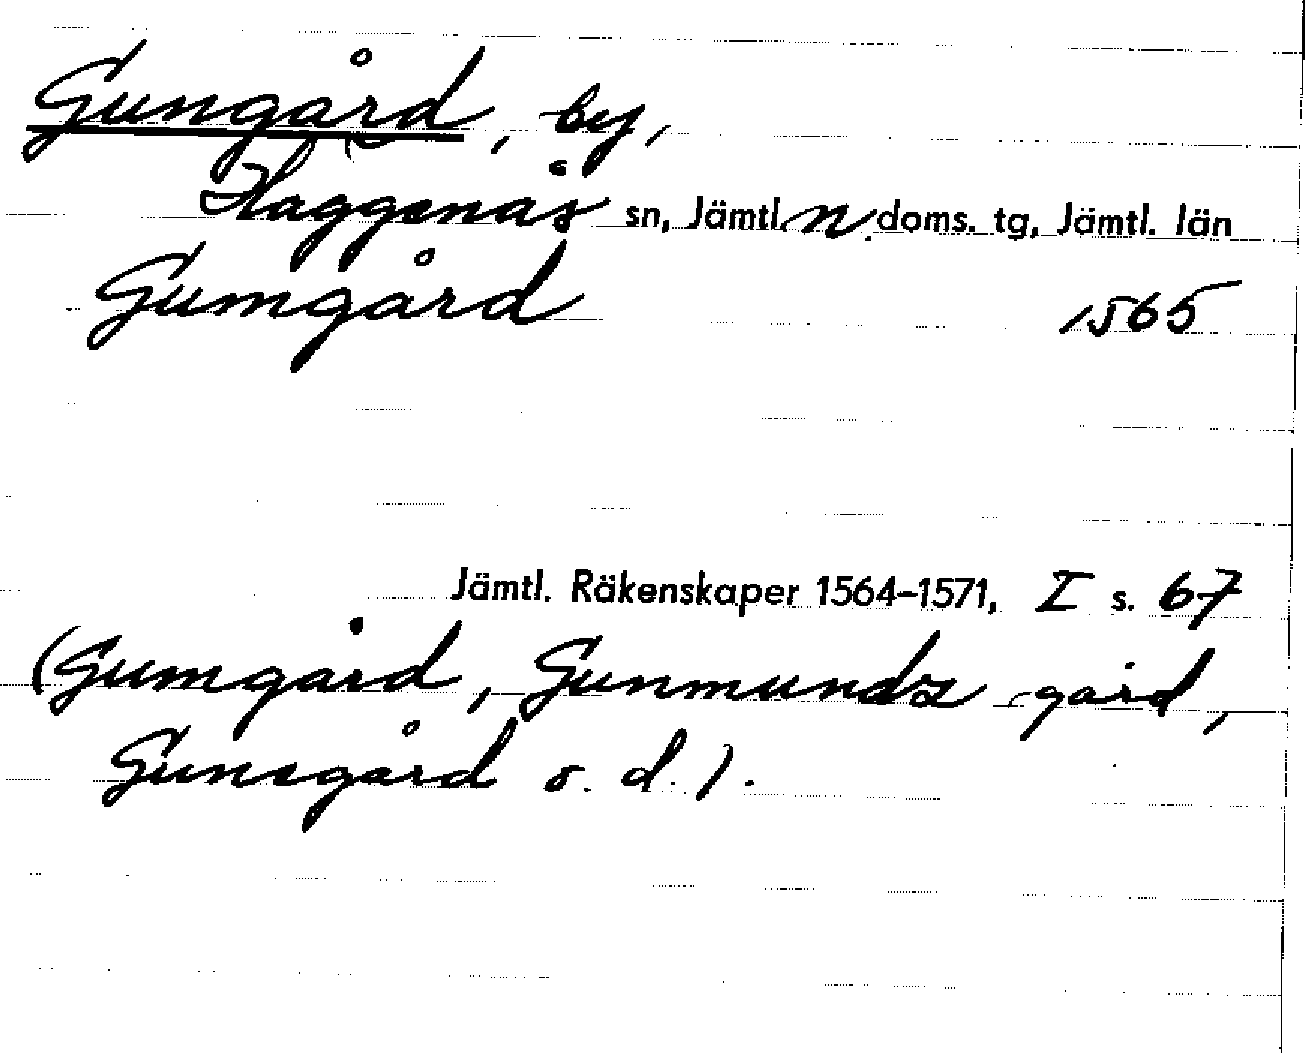 Gungård, by,
Häggenås sn, Jämtl. n. doms. tg, Jämtl. län
Gumgård 1565
Jämtl. Räkenskaper 1564–1571, I s. 67
(Gumgård, Gunmundz gård,
Gunsgård o. d.).